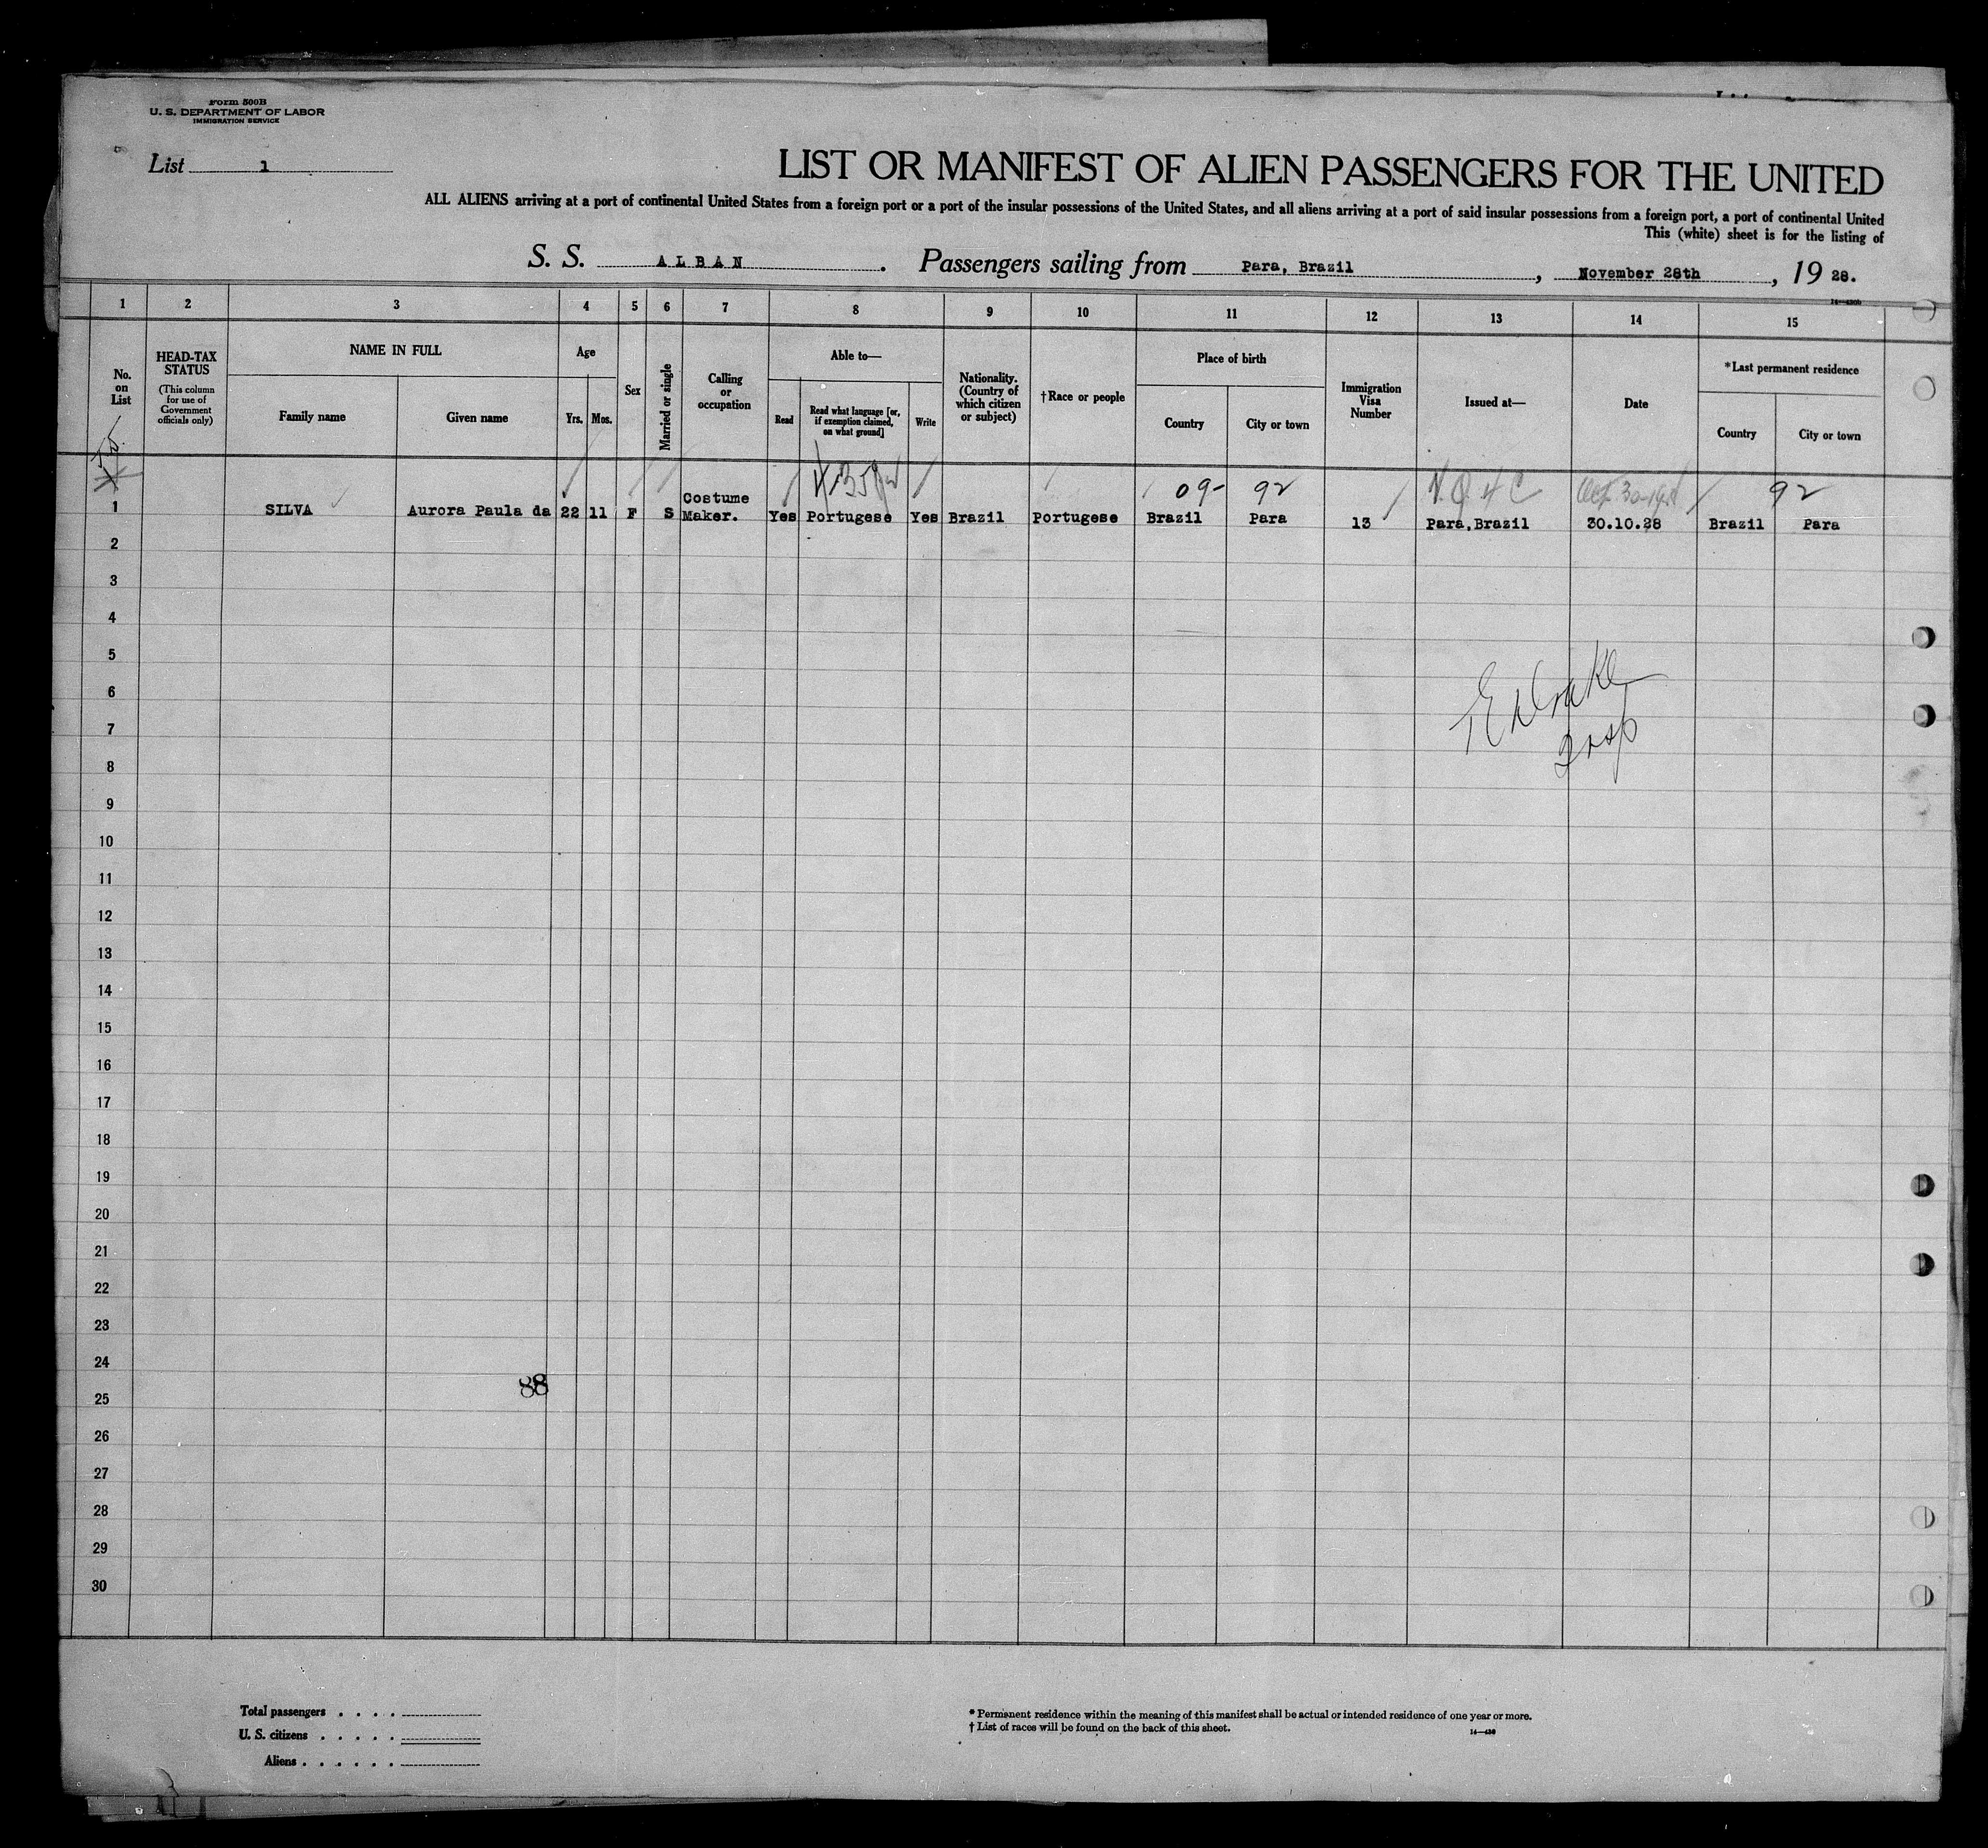 Form 500B
U. S. DEPARTMENT OF LABOR
IMMIGRATION SERVICE
List 1
LIST OR MANIFEST OF ALIEN PASSENGERS FOR THE UNITED
ALL ALIENS arriving at a port of continental United States from a foreign port or a port of the insular possessions of the United States, and all aliens arriving at a port of said insular possessions from a foreign port, a port of continental United
This (white) sheet is for the listing of
S. S. ALBAN. Passengers sailing from Para, Brazil, November 28th, 19 28.
1 2 3 4 5 6 7 8 9 10 11 12 13 14 15
No. on List
HEAD-TAX STATUS (This column for use of Government officials only)
NAME IN FULL
Family name
Given name
Age
Yrs. Mos.
Sex
Married or single
Calling or occupation
Able to—
Read
Read what language [or, if exemption claimed, on what ground]
Write
Nationality. (Country of which citizen or subject)
†Race or people
Place of birth
Country
City or town
Immigration Visa Number
Issued at—
Date
*Last permanent residence
Country
City or town
09- 92 92
1 SILVA Aurora Paula da 22 11 F S Costume Maker. Yes Portugese Yes Brazil Portugese Brazil Para 13 Para,Brazil 30.10.28 Brazil Para
2
3
4
5
6
7
8
9
10
11
12
13
14
15
16
17
18
19
20
21
22
23
24
88
25
26
27
28
29
30
Total passengers . . . .
U. S. citizens . . . . .
Aliens . . . . . .
* Permanent residence within the meaning of this manifest shall be actual or intended residence of one year or more.
† List of races will be found on the back of this sheet.